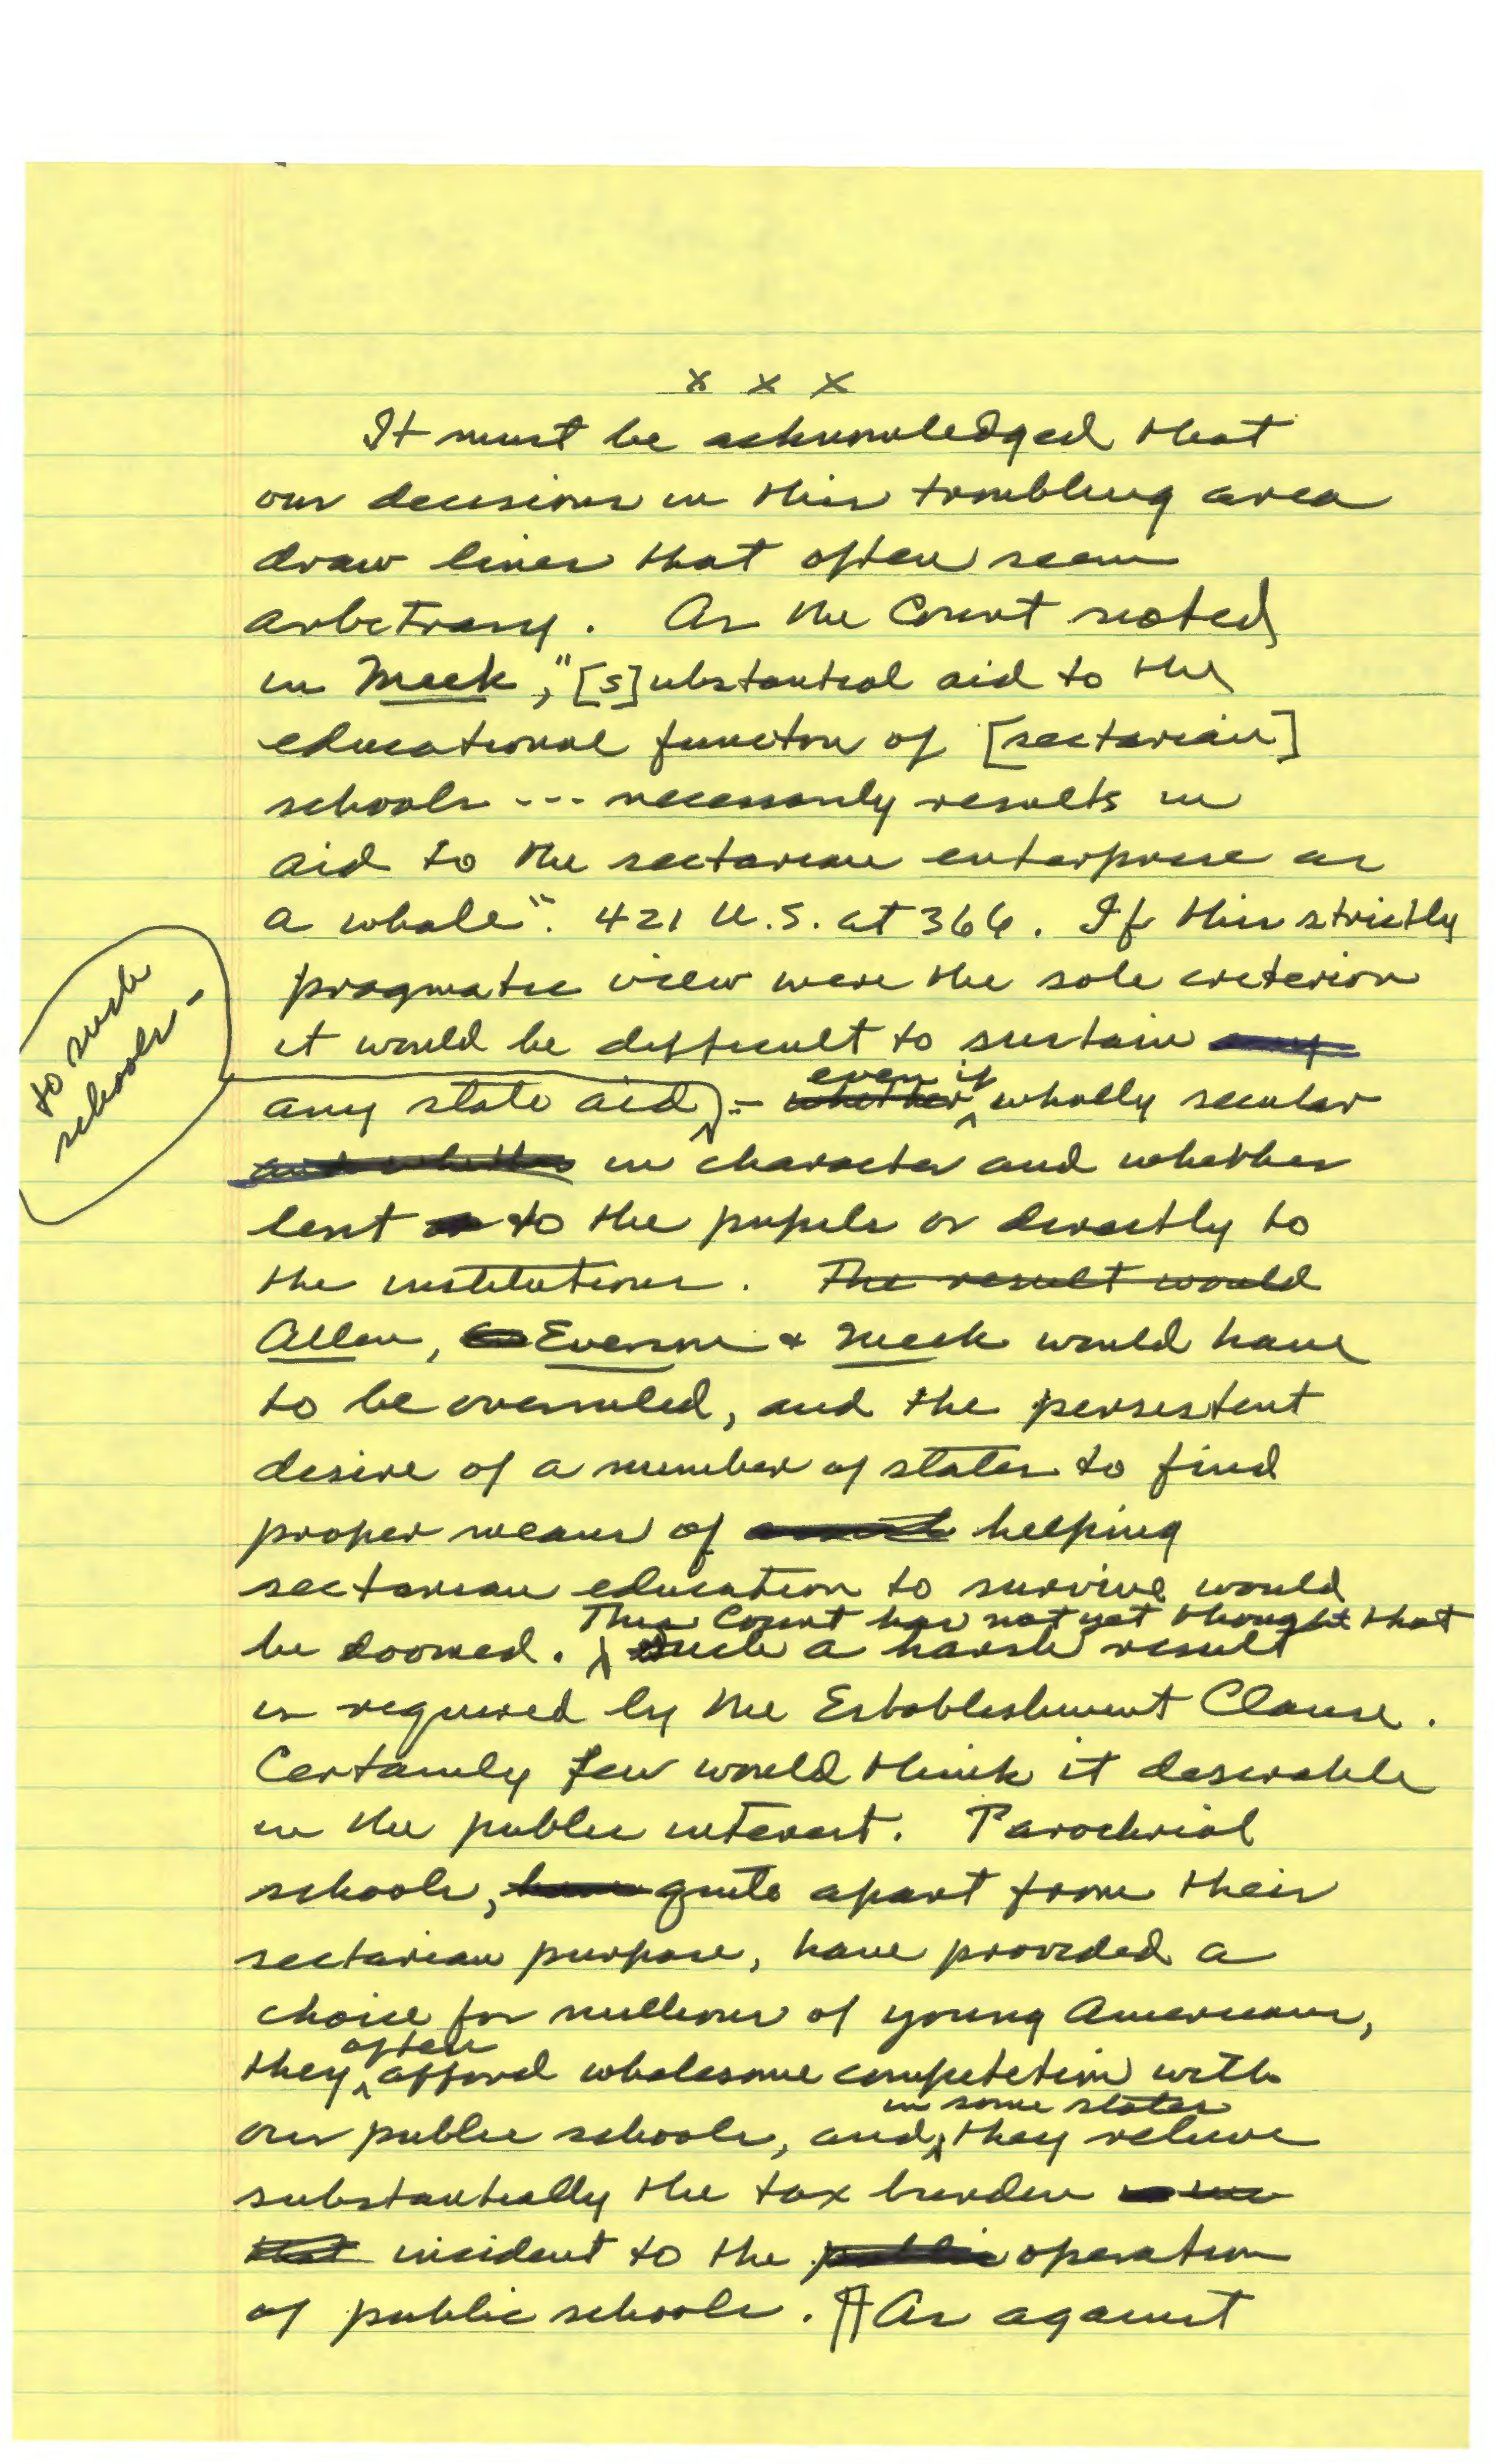 x x x
It must be acknowledged that
our decisions in this troubling area
draw lines that often seem
arbitrary. As the Court noted
in Meek, "[s]ubstantial aid to the
educational function of [sectarian]
schools --- necessarily results in
aid to the sectarian enterprise as
a whole". 421 U.S. at 366. If this strictly
pragmatic view were the sole criterion
it would be difficult to sustain any
to such
schools -
any state aid - whether even if wholly secular
and whether in character and whether
lent to the pupils or directly to
the institutions. The result would
Allen, Everson & Meek would have
to be overruled, and the persistent
desire of a number of states to find
proper means of helping
sectarian education to survive would
This Court has not yet thought that
be doomed. Such a harsh result
is required by the Establishment Clause.
Certainly few would think it desirable
in the public interest. Parochial
schools, have quite apart from their
sectarian purpose, have provided a
choice for millions of young Americans,
often
they afford wholesome competition with
in some states
our public schools, and they relieve
substantially the tax burden
that incident to the public operation
of public schools. ¶ As against